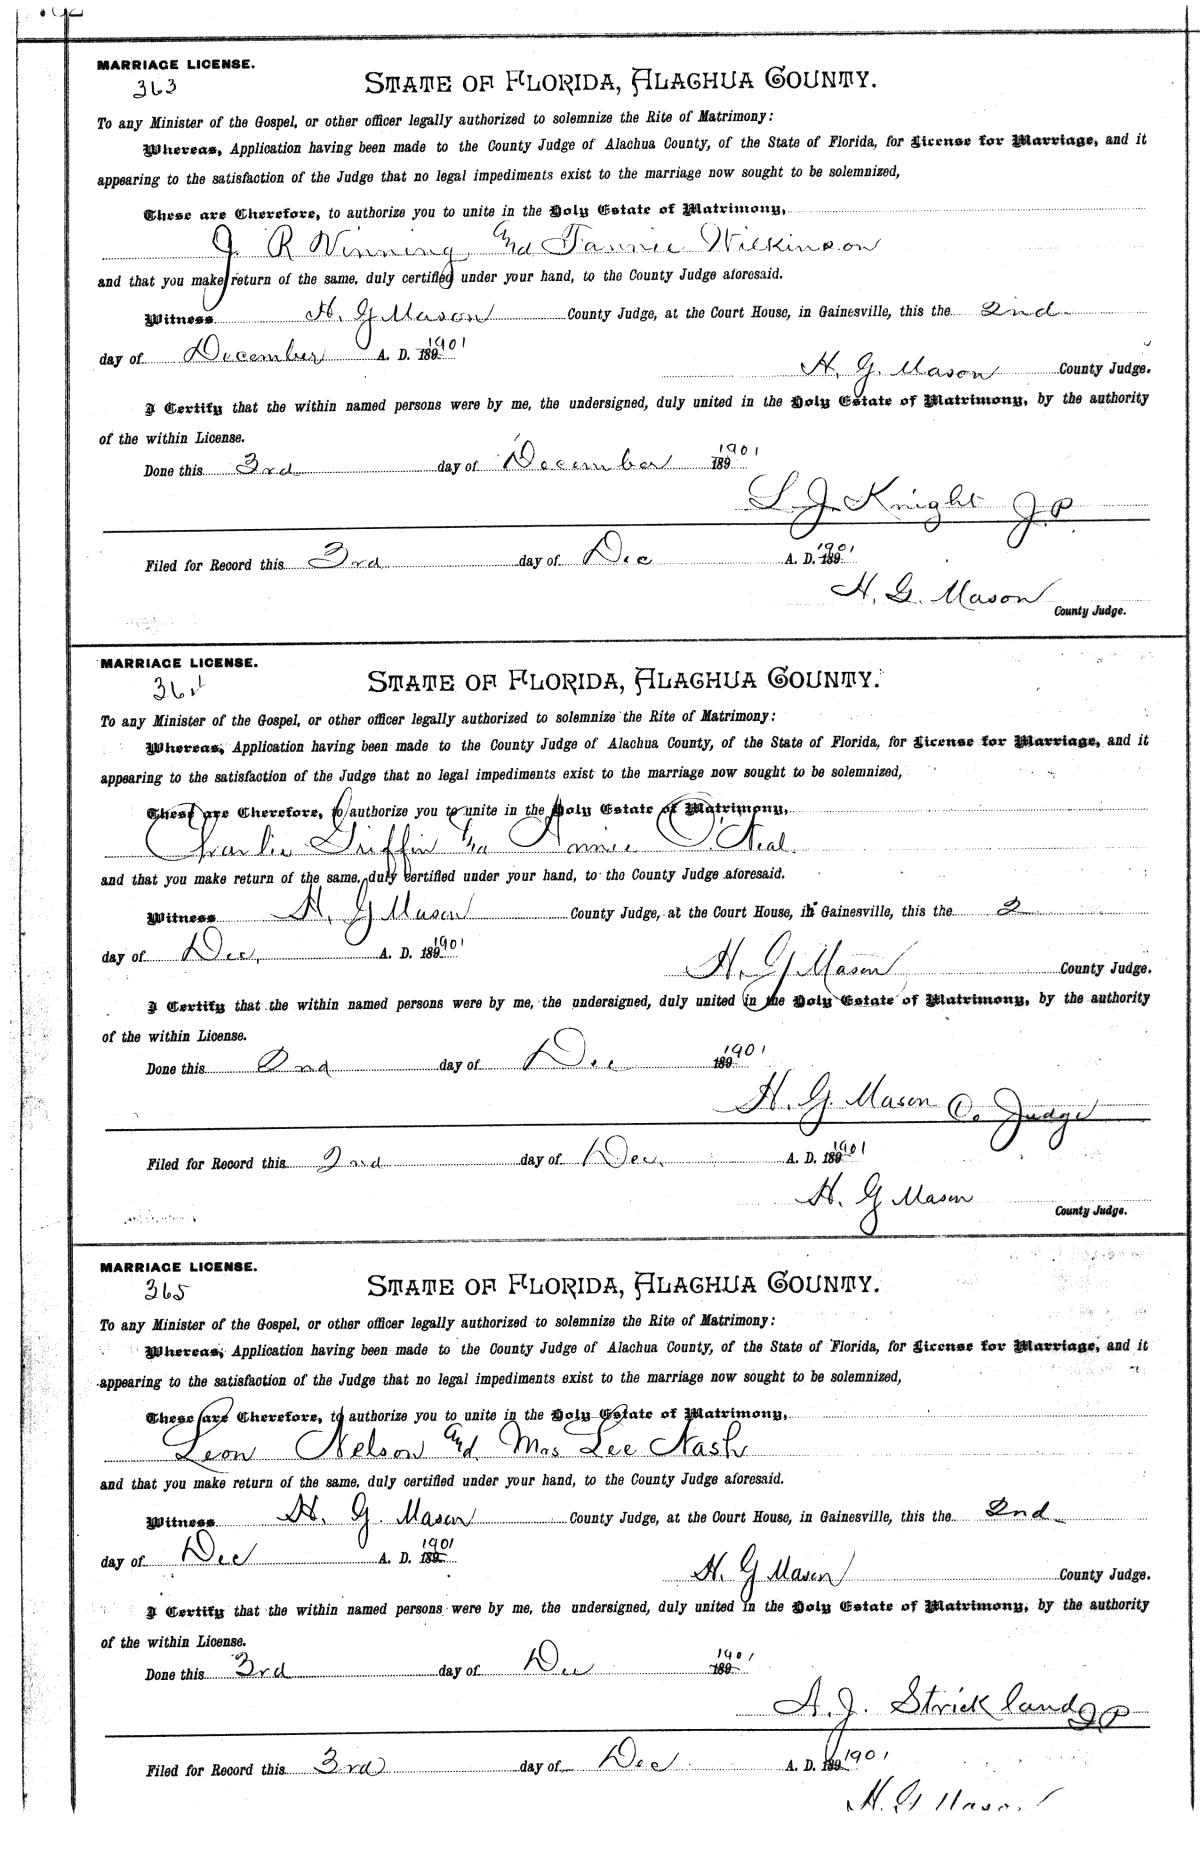 MARRIAGE LICENSE.
363
STATE OF FLORIDA, ALACHUA COUNTY.
To any Minister of the Gospel, or other officer legally authorized to solemnize the Rite of Matrimony:
Whereas, Application having been made to the County Judge of Alachua County, of the State of Florida, for License for Marriage, and it
appearing to the satisfaction of the Judge that no legal impediments exist to the marriage now sought to be solemnized,
These are Therefore, to authorize you to unite in the Holy Estate of Matrimony,
J. R Vinning and Fannie Wilkinson
and that you make return of the same, duly certified under your hand, to the County Judge aforesaid.
Witness H. G Mason County Judge, at the Court House, in Gainesville, this the 2nd
day of December A. D. 189 1901
H. G. Mason County Judge.
I Certify that the within named persons were by me, the undersigned, duly united in the Holy Estate of Matrimony, by the authority
of the within License.
Done this 3rd day of December 189 1901
L. J. Knight J.P
Filed for Record this 3rd day of Dec A. D. 189 1901
H. G. Mason
County Judge.
MARRIAGE LICENSE.
364
STATE OF FLORIDA, ALACHUA COUNTY.
To any Minister of the Gospel, or other officer legally authorized to solemnize the Rite of Matrimony:
Whereas, Application having been made to the County Judge of Alachua County, of the State of Florida, for License for Marriage, and it
appearing to the satisfaction of the Judge that no legal impediments exist to the marriage now sought to be solemnized,
These are Therefore, to authorize you to unite in the Holy Estate of Matrimony,
Charlie Griffin and Annie O.Neal
and that you make return of the same, duly certified under your hand, to the County Judge aforesaid.
Witness H. G Mason County Judge, at the Court House, in Gainesville, this the 2
day of Dec. A. D. 189 1901
H. G Mason County Judge.
I Certify that the within named persons were by me, the undersigned, duly united in the Holy Estate of Matrimony, by the authority
of the within License.
Done this 2nd day of Dec 189 1901
H. G. Mason Co Judge
Filed for Record this 2nd day of Dec. A. D. 189 1901
H. G Mason
County Judge.
MARRIAGE LICENSE.
365
STATE OF FLORIDA, ALACHUA COUNTY.
To any Minister of the Gospel, or other officer legally authorized to solemnize the Rite of Matrimony:
Whereas, Application having been made to the County Judge of Alachua County, of the State of Florida, for License for Marriage, and it
appearing to the satisfaction of the Judge that no legal impediments exist to the marriage now sought to be solemnized,
These are Therefore, to authorize you to unite in the Holy Estate of Matrimony,
Leon Nelson and Mrs Lee Nash
and that you make return of the same, duly certified under your hand, to the County Judge aforesaid.
Witness H. G. Mason County Judge, at the Court House, in Gainesville, this the 2nd
day of Dec A. D. 189 1901
H. G Mason County Judge.
I Certify that the within named persons were by me, the undersigned, duly united in the Holy Estate of Matrimony, by the authority
of the within License.
Done this 3rd day of Dec 189 1901
A. J. Strickland J P
Filed for Record this 3rd day of Dec A. D. 189 1901
H. G Mason